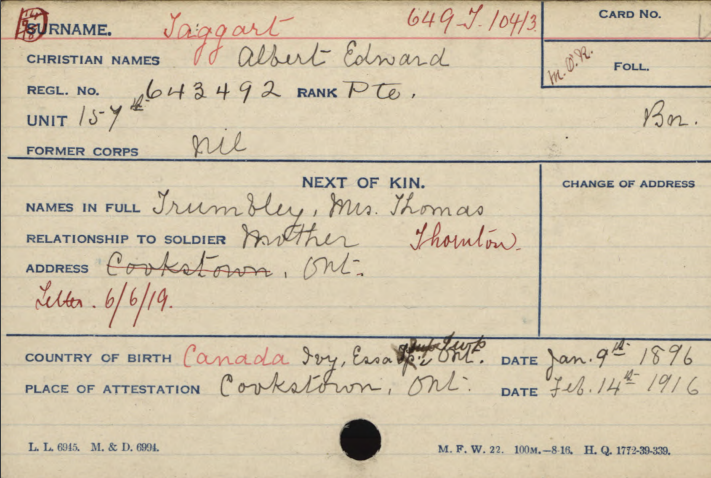 SURNAME. Taggart 649-T-10413
CARD No.
CHRISTIAN NAMES Albert Edward
M.O.R. FOLL.
REGL. No. 643492 RANK Pte.
UNIT 157th Bn.
FORMER CORPS Nil
NEXT OF KIN.
CHANGE OF ADDRESS
NAMES IN FULL Trumbley, Mrs. Thomas
RELATIONSHIP TO SOLDIER Mother Thornton.
ADDRESS Cookstown, Ont.
Letter. 6/6/19.
COUNTRY OF BIRTH Canada Ivy, Essa Ont. DATE Jan. 9th 1896
PLACE OF ATTESTATION Cookstown, Ont. DATE Feb. 14th 1916
L. L. 6945. M. & D. 6994.
M. F. W. 22. 100M.—8-16. H. Q. 1772-39-339.